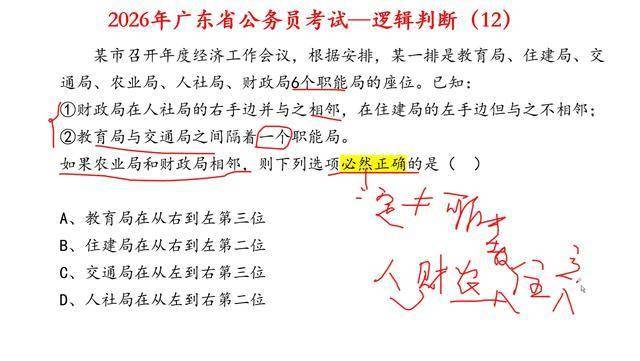 2026年广东省公务员考试—逻辑判断（12）
某市召开年度经济工作会议，根据安排，某一排是教育局、住建局、交
通局、农业局、人社局、财政局6个职能局的座位。已知：
①财政局在人社局的右手边并与之相邻，在住建局的左手边但与之不相邻；
②教育局与交通局之间隔着一个职能局。
如果农业局和财政局相邻，则下列选项必然正确的是（　）
A、教育局在从右到左第三位
B、住建局在从右到左第二位
C、交通局在从左到右第三位
D、人社局在从左到右第二位
一定≠可能
人财农 住